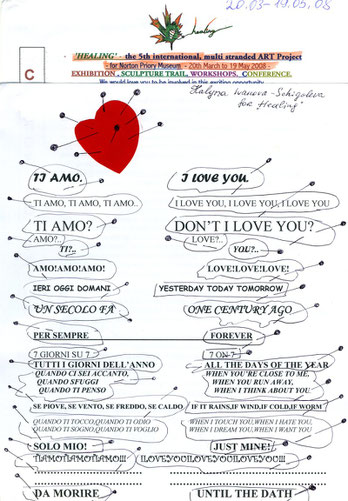 20.03-19.05, 08
healing
'HEALING' - the 5th international, multi stranded ART Project
- for Norton Priory Museum - 20th March to 19 May 2008 -
EXHIBITION, SCULPTURE TRAIL, WORKSHOPS, CONFERENCE.
We would love you to be involved in this exciting opportunity
C
for Healing"
TI AMO.
I LOVE YOU.
TI AMO, TI AMO, TI AMO..
I LOVE YOU, I LOVE YOU, I LOVE YOU
TI AMO?
DON'T I LOVE YOU?
AMO?..
LOVE?..
TI?..
YOU?..
AMO!AMO!AMO!
LOVE!LOVE!LOVE!
IERI OGGI DOMANI
YESTERDAY TODAY TOMORROW
UN SECOLO FA
ONE CENTURY AGO
PER SEMPRE
FOREVER
7 GIORNI SU 7
7 ON 7
TUTTI I GIORNI DELL'ANNO
ALL THE DAYS OF THE YEAR
QUANDO CI SEI ACCANTO,
WHEN YOU'RE CLOSE TO ME,
QUANDO SFUGGI
WHEN YOU RUN AWAY,
QUANDO TI PENSO
WHEN I THINK ABOUT YOU
SE PIOVE, SE VENTO, SE FREDDO, SE CALDO
IF IT RAINS,IF WIND,IF COLD,IF WORM
QUANDO TI TOCCO,QUANDO TI ODIO
WHEN I TOUCH YOU,WHEN I HATE YOU,
QUANDO TI SOGNO,QUANDO TI VOGLIO
WHEN I DREAM YOU,WHEN I WANT YOU
SOLO MIO!
JUST MINE!
TIAMOTIAMOTIAMO!!!
ILOVEYOUILOVEYOUILOVEYOU!!!
DA MORIRE
UNTIL THE DATH